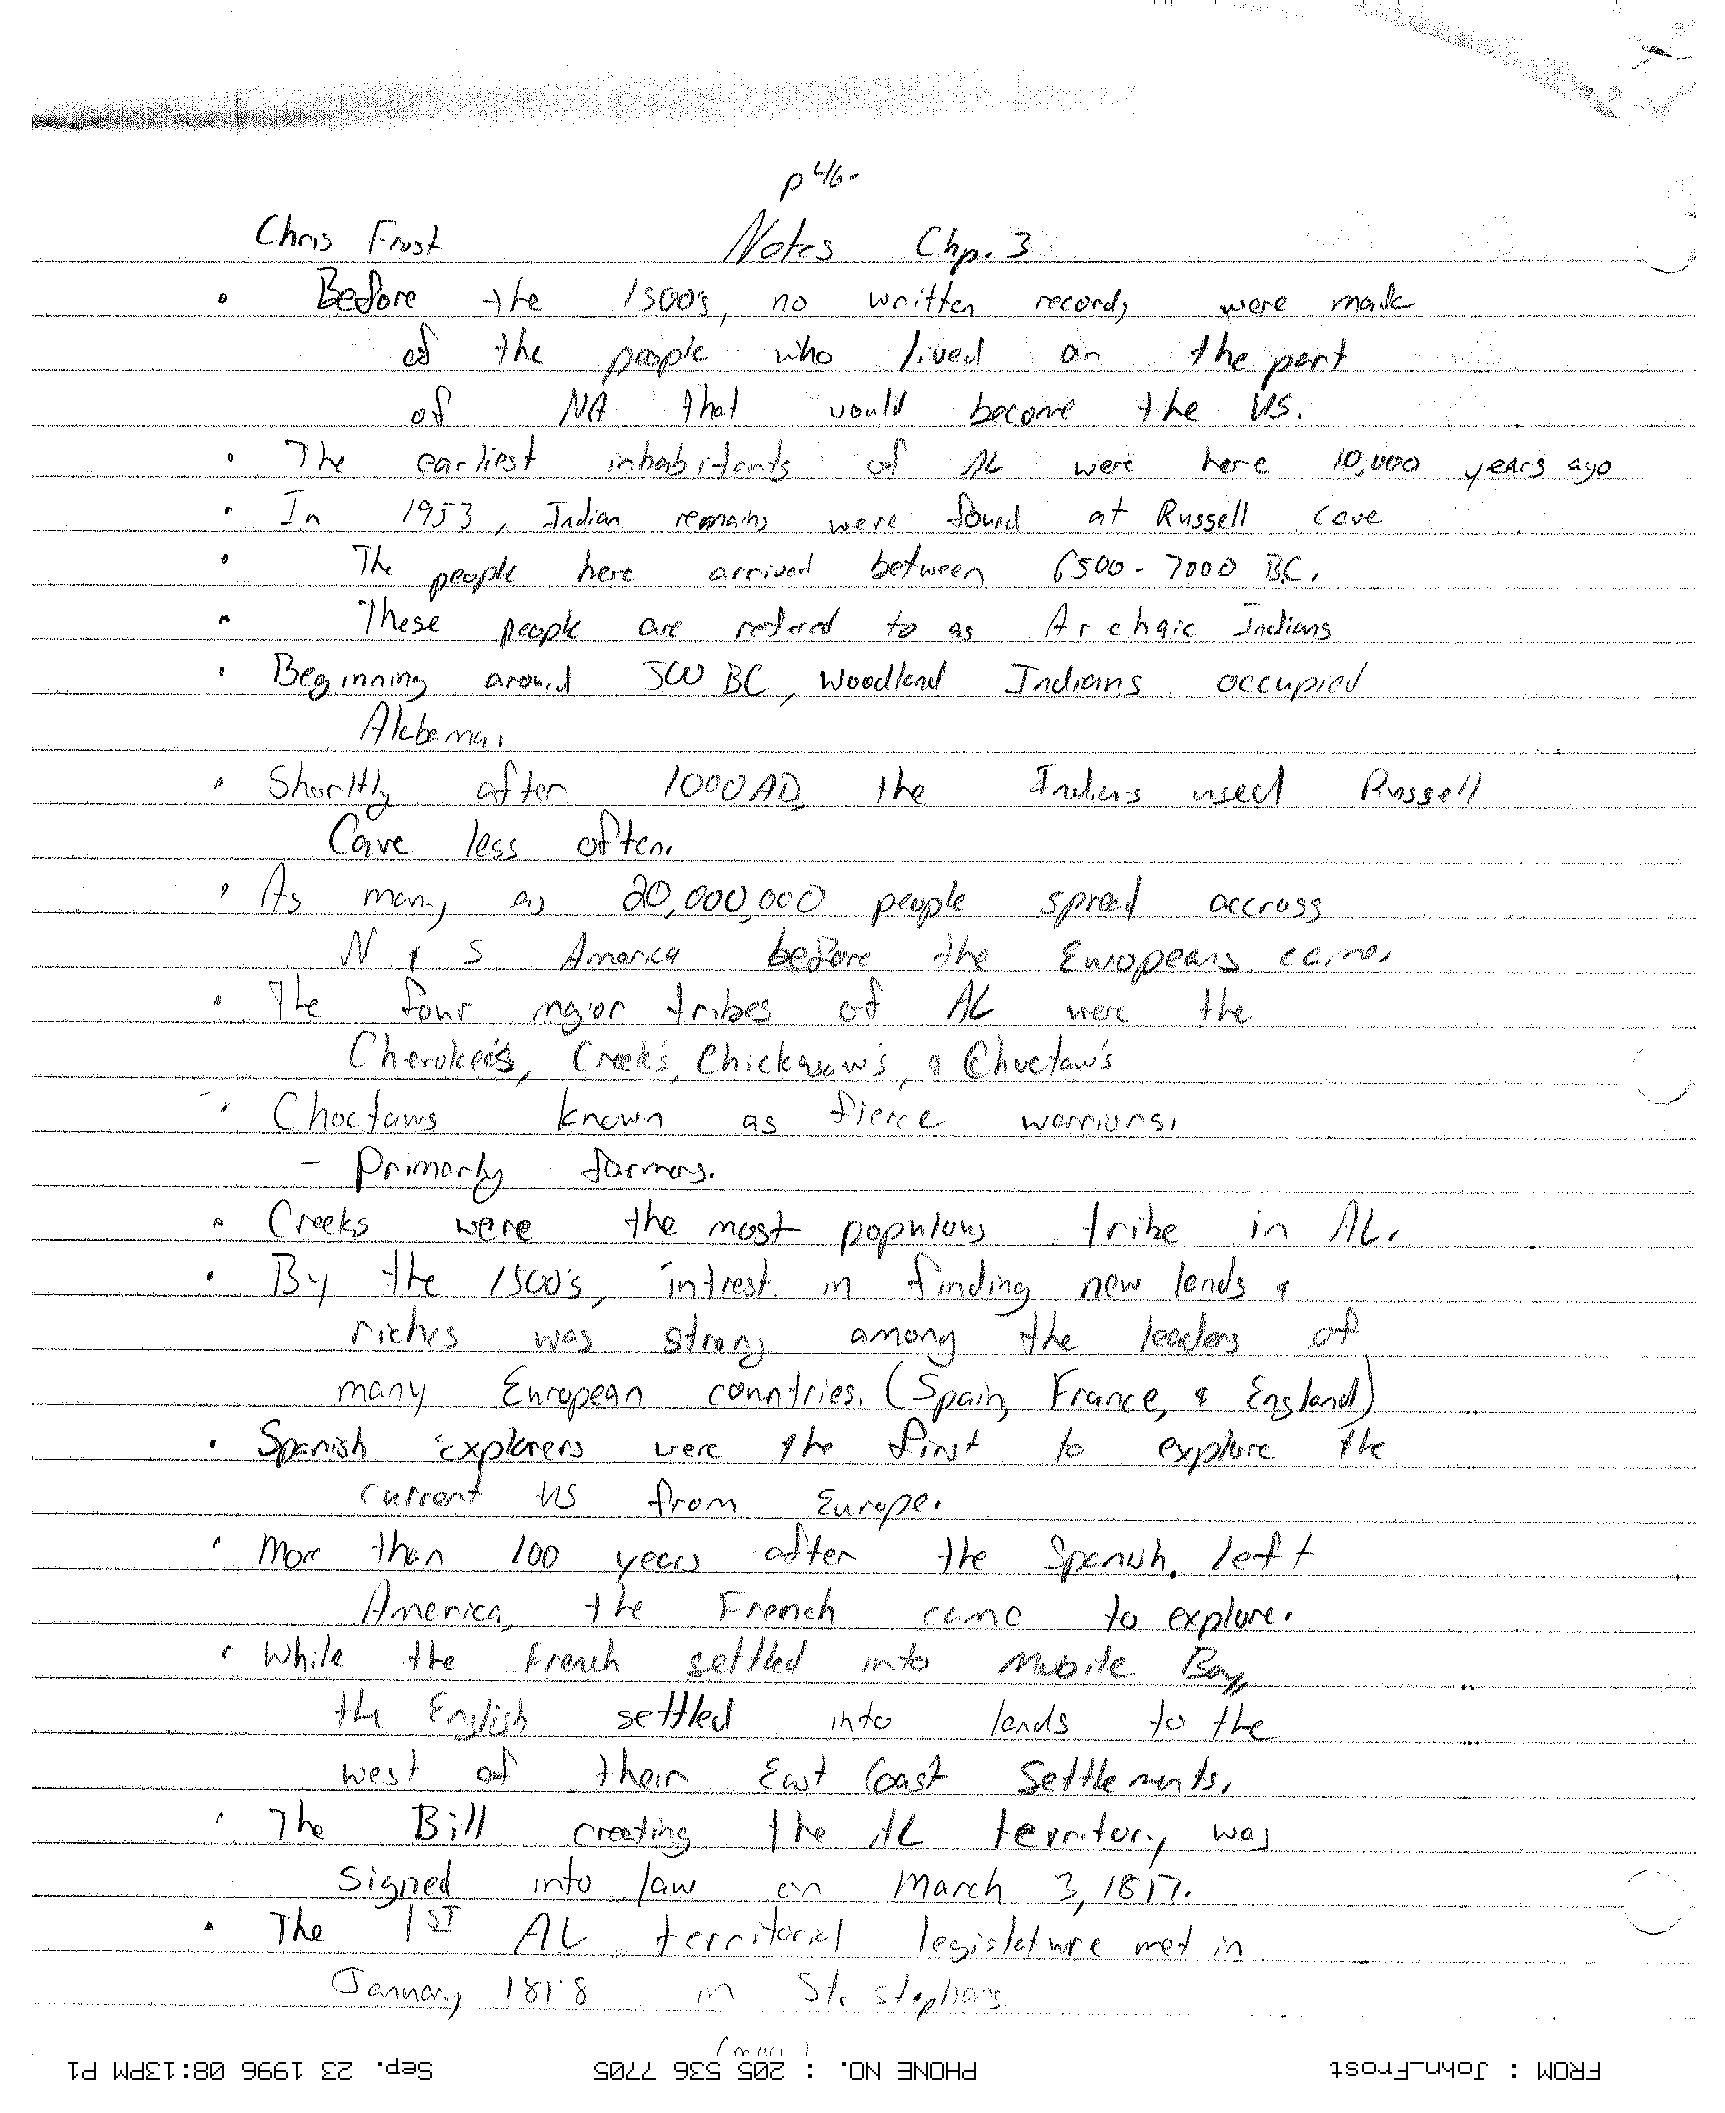 Chris Frost Notes Chp. 3
• Before the 1500's, no written records were made
of the people who lived on the part
of NA that would become the US.
• The earliest inhabitants of AL were here 10,000 years ago
• In 1953, Indian remains were found at Russell Cave
• The people here arrived between 6500-7000 B.C.
• These people are refered to as Archaic Indians
• Beginning around 500 BC, Woodland Indians occupied
Alabama.
• Shorltly after 1000 AD, the Indians used Russell
Cave less often.
• As many as 20,000,000 people spread accross
N & S America before the Europeans came.
• The four major tribes of AL were the
Cherokee's, Creek's, Chickasaw's, & Choctaw's
• Choctaws known as fierce warriors.
- Primarly farmers.
• Creeks were the most populous tribe in AL.
• By the 1500's, intrest in finding new lands &
riches was strong among the leaders of
many European countries. (Spain, France, & England)
• Spanish explorers were the first to explore the
current US from Europe.
• More than 100 years after the Spanish left
America, the French came to explore.
• While the French settled into Mobile Bay,
the English settled into lands to the
west of their East Coast Settlements.
• The Bill creating the AL territory was
signed into law on March 3, 1817.
• The 1ST AL territorial legislature met in
January 1818 in St. Stephens
FROM : John_Frost PHONE NO. : 205 536 7705 Sep. 23 1996 08:13PM P1